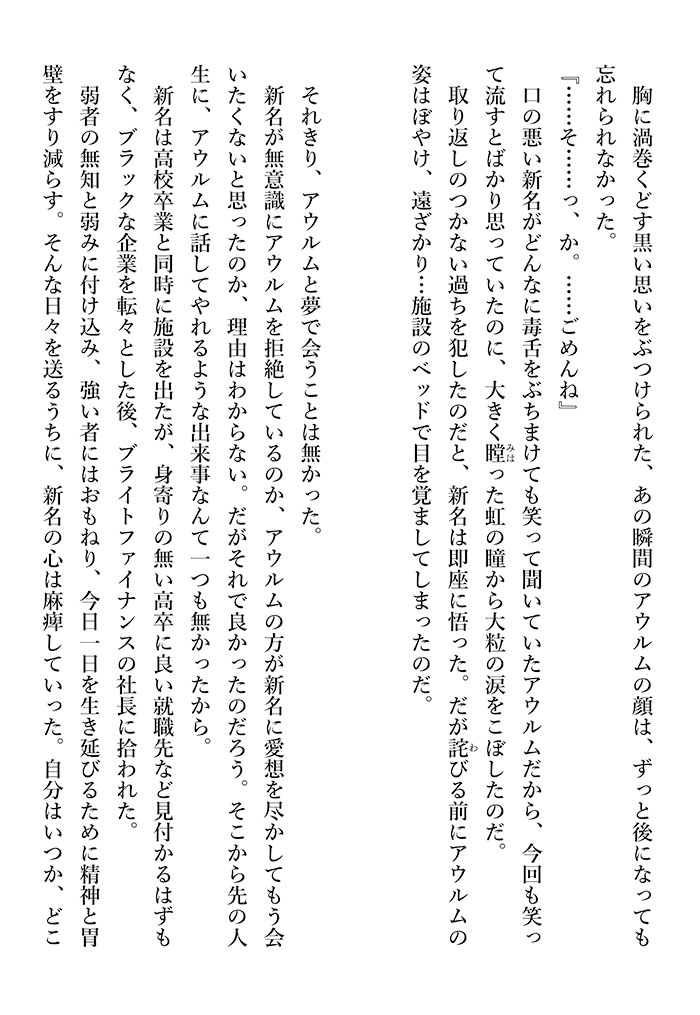 胸に渦巻くどす黒い思いをぶつけられた、あの瞬間のアウルムの顔は、ずっと後になっても
忘れられなかった。
『……そ……っ、か。……ごめんね』
口の悪い新名がどんなに毒舌をぶちまけても笑って聞いていたアウルムだから、今回も笑っ
て流すとばかり思っていたのに、大きく瞠った虹の瞳から大粒の涙をこぼしたのだ。
取り返しのつかない過ちを犯したのだと、新名は即座に悟った。だが詫びる前にアウルムの
姿はぼやけ、遠ざかり…施設のベッドで目を覚ましてしまったのだ。
それきり、アウルムと夢で会うことは無かった。
新名が無意識にアウルムを拒絶しているのか、アウルムの方が新名に愛想を尽かしてもう会
いたくないと思ったのか、理由はわからない。だがそれで良かったのだろう。そこから先の人
生に、アウルムに話してやれるような出来事なんて一つも無かったから。
新名は高校卒業と同時に施設を出たが、身寄りの無い高卒に良い就職先など見付かるはずも
なく、ブラックな企業を転々とした後、ブライトファイナンスの社長に拾われた。
弱者の無知と弱みに付け込み、強い者にはおもねり、今日一日を生き延びるために精神と胃
壁をすり減らす。そんな日々を送るうちに、新名の心は麻痺していった。自分はいつか、どこ